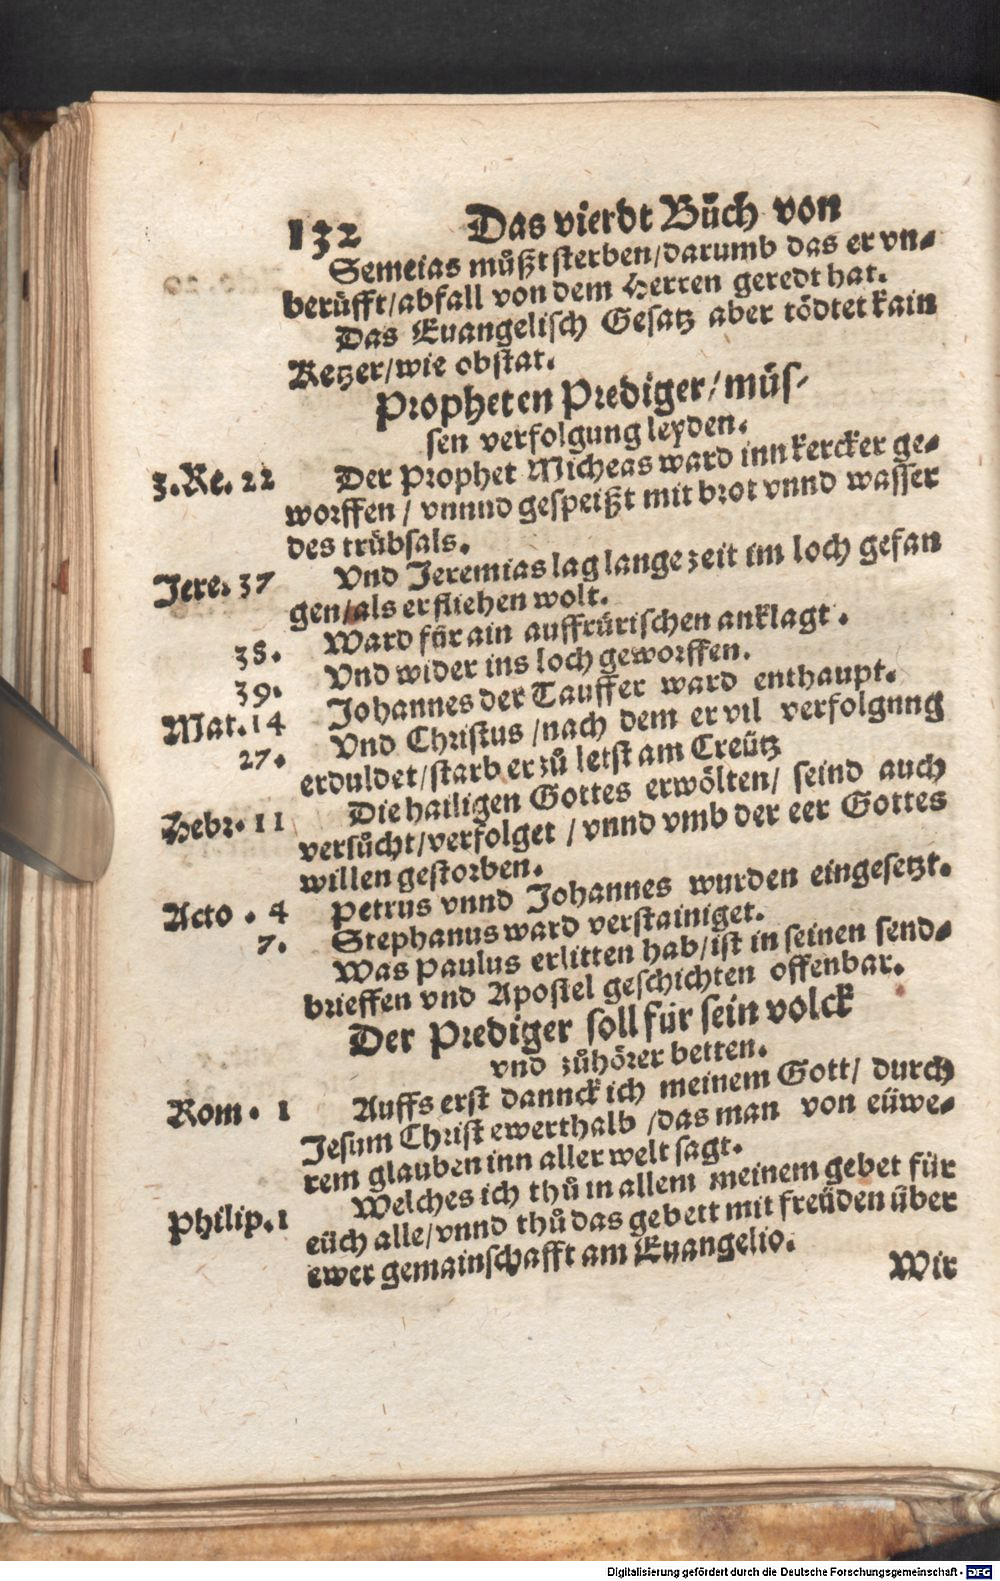 132 Das vierdt Bůch von
Semeias můßt sterben/darumb das er vn⸗
berüfft/abfall von dem Herren geredt hat.
Das Euangelisch Gesatz aber tödtet kain
Ketzer/wie obstat.
Propheten Prediger/müs⸗
sen verfolgung leyden.
3.Re. 22 Der Prophet Micheas ward inn kercker ge⸗
worffen/ vnnnd gespeißt mit brot vnnd wasser
des trübsals.
Jere. 37 Vnd Jeremias lag lange zeit im loch gefan
gen/als er fliehen wolt.
38. Ward für ain auffrürischen anklagt.
39. Vnd wider ins loch geworffen.
Mat.14 Johannes der Tauffer ward enthaupt.
27. Vnd Christus/nach dem er vil verfolgnng
erduldet/starb er zů letst am Creütz
Hebr. 11 Die hailigen Gottes erwölten/ seind auch
versůcht/verfolget/vnnd vmb der eer Gottes
willen gestorben.
Acto. 4 Petrus vnnd Johannes wurden eingesetzt.
7. Stephanus ward verstainiget.
Was Paulus erlitten hab/ist in seinen send⸗
brieffen vnd Apostel geschichten offenbar.
Der Prediger soll für sein volck
vnd zůhörer betten.
Rom. 1 Auffs erst dannck ich meinem Gott/ durch
Jesum Christ ewerthalb/das man von eüwe⸗
rem glauben inn aller welt sagt.
Philip.1 Welches ich thů in allem meinem gebet für
eüch alle/vnnd thů das gebett mit freüden über
ewer gemainschafft am Euangelio.
Wir
Digitalisierung gefördert durch die Deutsche Forschungsgemeinschaft - DFG